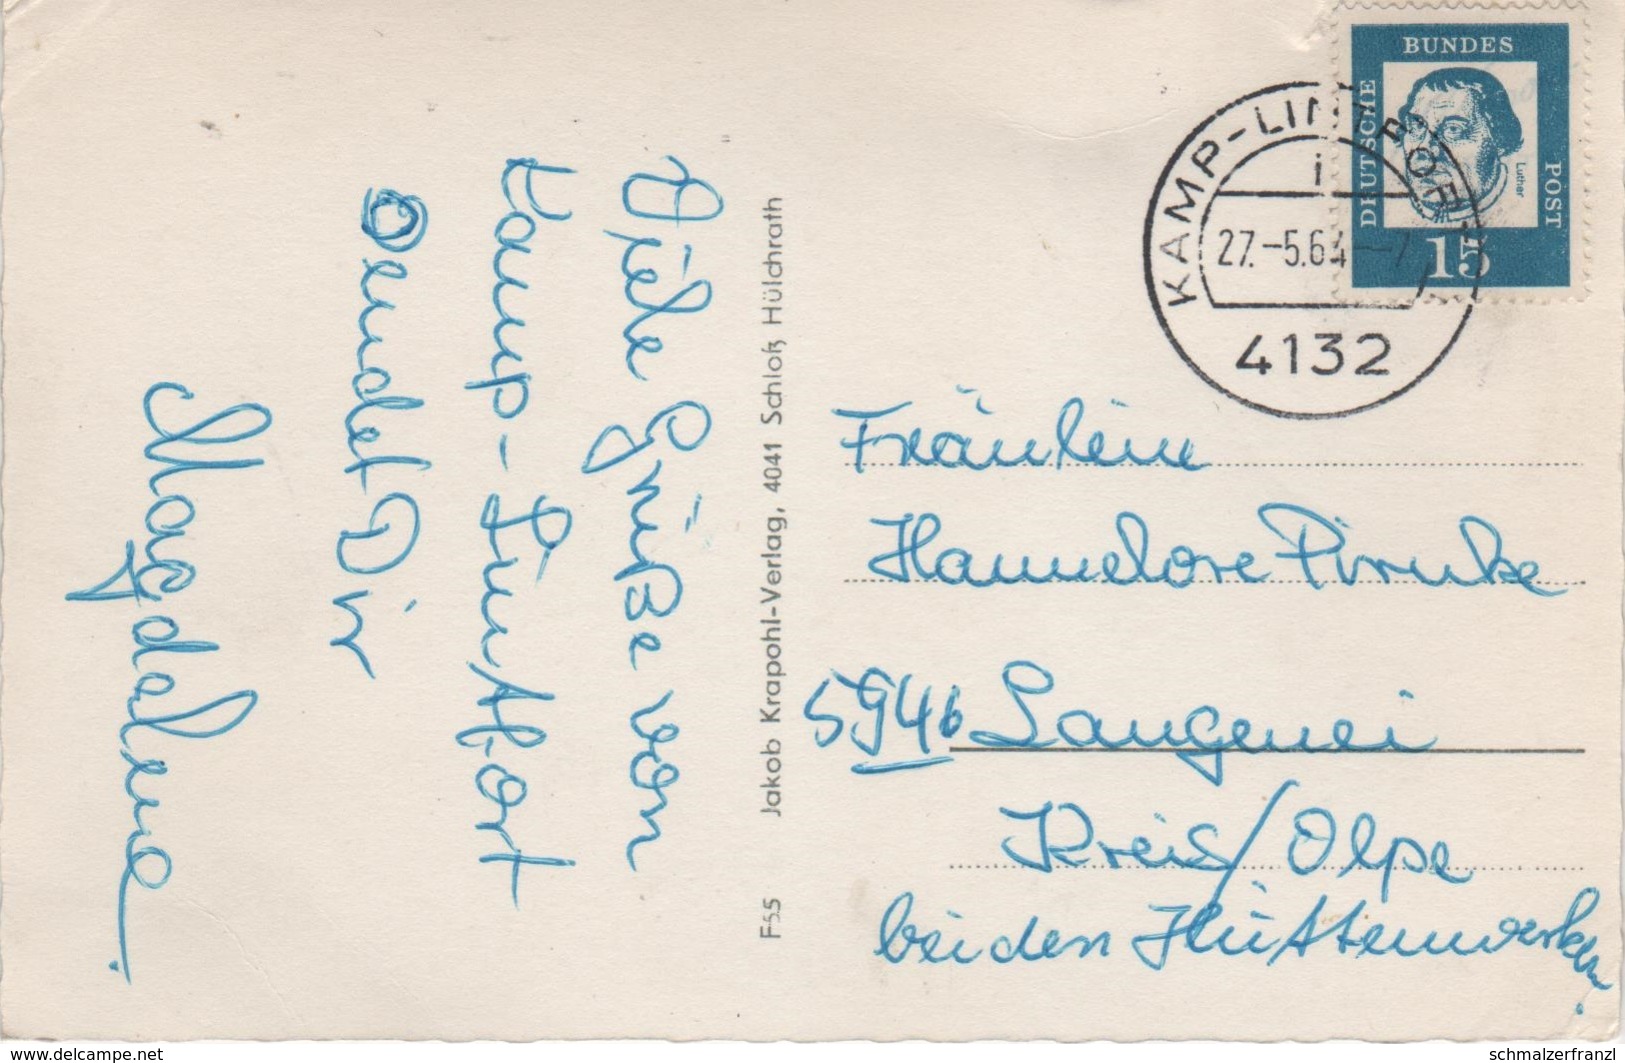 Viele Grüße von
Kamp-Lintfort
sendet Dir
Magdalene.
F55 Jakob Krapohl-Verlag, 4041 Schloß Hülchrath
DEUTSCHE BUNDES POST
Luther
15
KAMP-LINTFORT
i
27.-5.64-
4132
Fräulein
Hannelore Pirnke
5946 Langenei
Kreis/Olpe
bei den Hüttenwerken.
www.delcampe.net
schmalzerfranzl